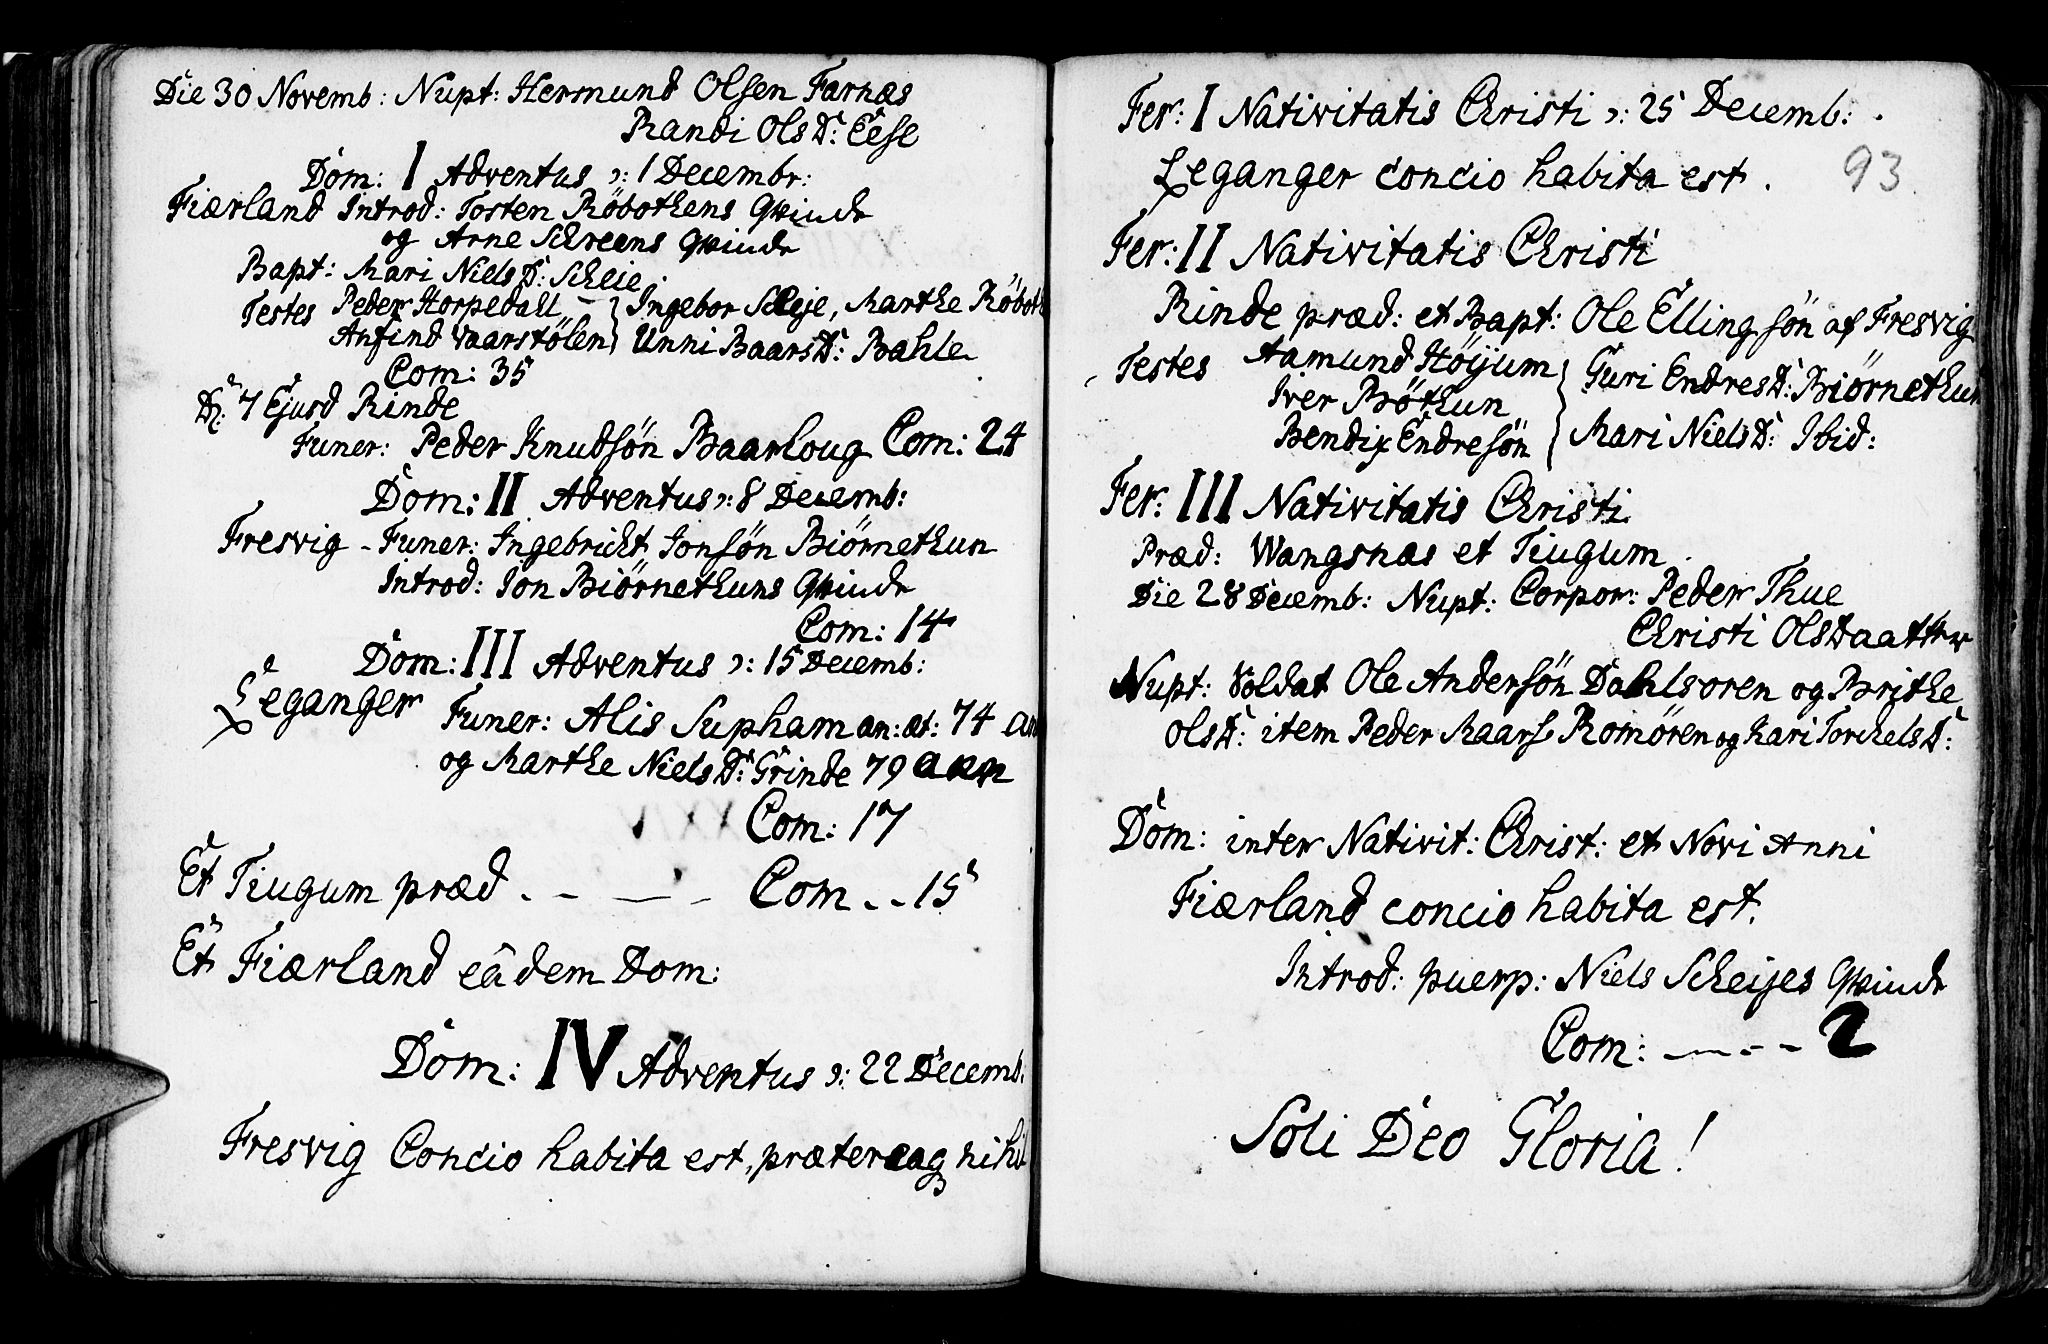 Die 30 Novemb: Nupt: Hermund Olsen Farnæs
Randi Ols D: Eese
Dom: I Adventus ɔ: 1 Decembr:
Fiærland Introd: Tosten Röbothens Qvinde
og Arne Schreens Qvinde
Bapt: Mari Niels D: Scheie.
Testes Peder Horpedall – } Ingebor Scheje, Marthe Röboth
Anfind Vaarstölen } Unni BaarsD: Bahle
Com: 35
D: 7 Ejusd Rinde
Funer: Peder Knudsön Baarloug Com: 24
Dom: II Adventus ɔ: 8 Decemb:
Fresvig - Funer: Ingebricht Jonsön Biörnethun
Introd: Jon Biörnethuns Qvinde
Com: 14
Dom: III Adventus ɔ: 15 Decemb:
Leganger Funer: Alis Supham an: æt: 74 an
og Marthe Niels D: Grinde 79 ann
Com: 17
Et Tiugum præd . - — - Com -- 15
Et Fiærland eâdem Dom:
Dom: IV Adventus ɔ: 22 Decemb:
Fresvig Concio habita est, prætereaq nihil
Fer: I Nativitatis Christi ɔ: 25 Decemb: .
Leganger concio habita est . 93
Fer: II Nativitatis Christi
Rinde præd: et Bapt: Ole Elling sön af Fresvig
Testes Aamund Höijum } Guri EndresD: Biörnethun
Iver Böthun
Bendix Endresön } Mari NielsD: Ibid:
Fer: III Nativitatis Christi
Præd: Wangsnæs et Tiugum .
Die 28 Decemb: Nupt: Corpor: Peder Thue
Christi Olsdaatter
Nupt: Soldat Ole Andersön Dahlsoren og Brithe
OlsD: item Peder Maars. Romören og Kari TorchelsD:
Dom: inter Nativit: Christ: et Novi Anni
Fiærland concio habita est.
Introd: puerp: Niels Scheijes Qvinde
Com: — - - - 2
Soli Deo Gloria!